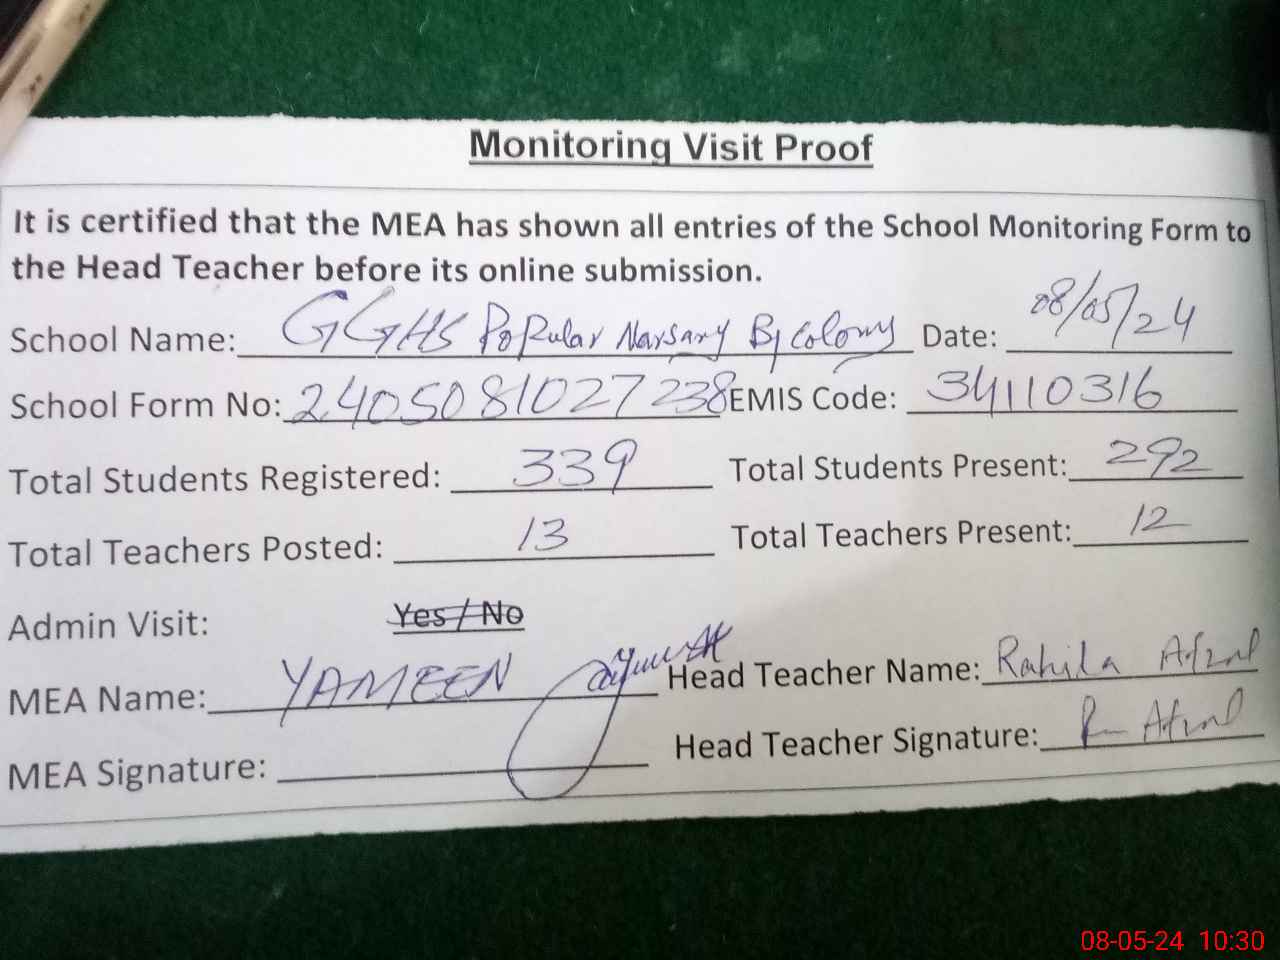 Monitoring Visit Proof
It is certified that the MEA has shown all entries of the School Monitoring Form to
the Head Teacher before its online submission.
School Name: GGHS Popular Narsary By colony Date: 08/05/24
School Form No: 2405081027238 EMIS Code: 34110316
Total Students Registered: 339 Total Students Present: 292
Total Teachers Posted: 13 Total Teachers Present: 12
Admin Visit: Yes / No
MEA Name: YAMEEN Head Teacher Name: Rahila Afzal
MEA Signature: Head Teacher Signature: R Afzal
08-05-24 10:30